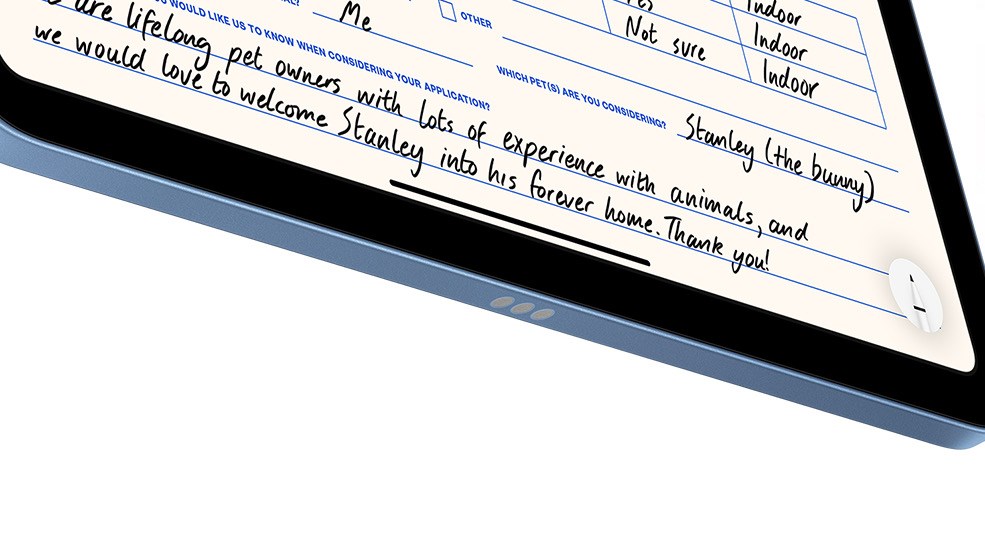 Indoor
Indoor
Not sure Indoor
Me
OTHER
WOULD LIKE US TO KNOW WHEN CONSIDERING YOUR APPLICATION?
are lifelong pet owners with lots of experience with animals, and
we would love to welcome Stanley into his forever home. Thank you!
WHICH PET(S) ARE YOU CONSIDERING? Stanley (the bunny)